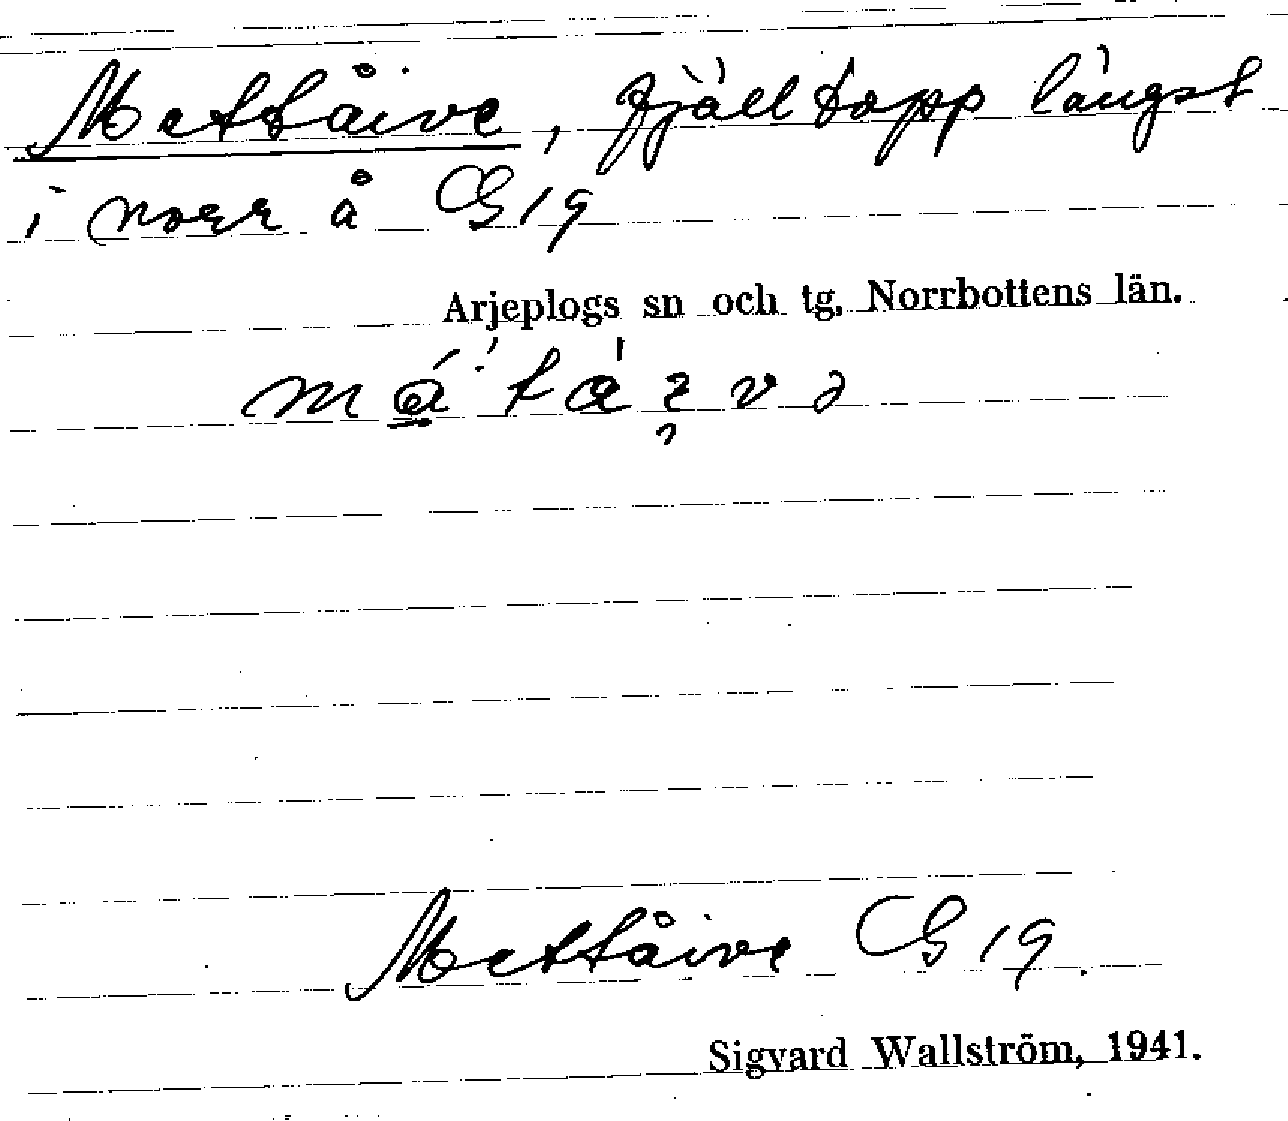 Mettåive, fjälltopp längst
i norr å GS 19
Arjeplogs sn och tg, Norrbottens län.
Mettåive GS 19.
Sigvard Wallström, 1941.